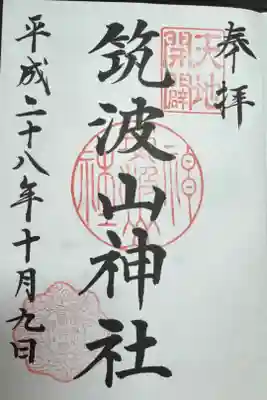 奉拝
天地
開闢
筑波山神社
平成二十八年十月九日